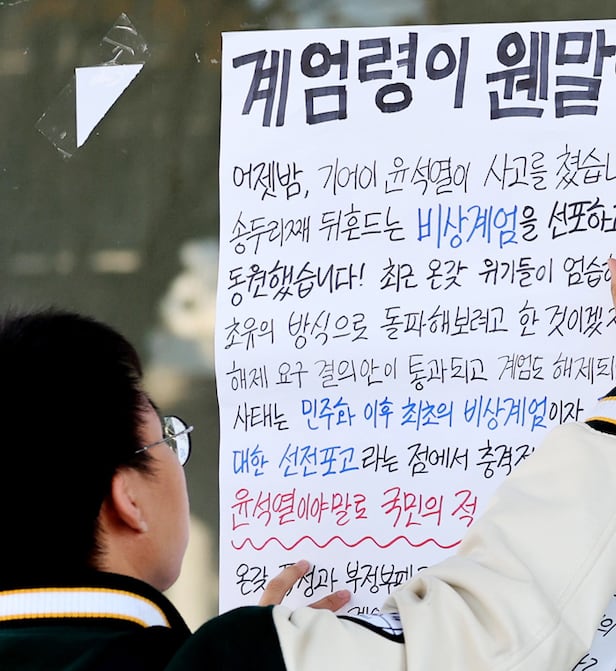 계엄령이 웬말
어젯밤, 기어이 윤석열이 사고를 쳤습니
송두리째 뒤흔드는 비상계엄을 선포하
동원했습니다! 최근 온갖 위기들이 엄습하
초유의 방식으로 돌파해보려고 한 것이겠지
해제 요구 결의안이 통과되고 계엄도 해제되
사태는 민주화 이후 최초의 비상계엄이자
대한 선전포고라는 점에서 충격적
윤석열이야말로 국민의 적
온갖 부정부패